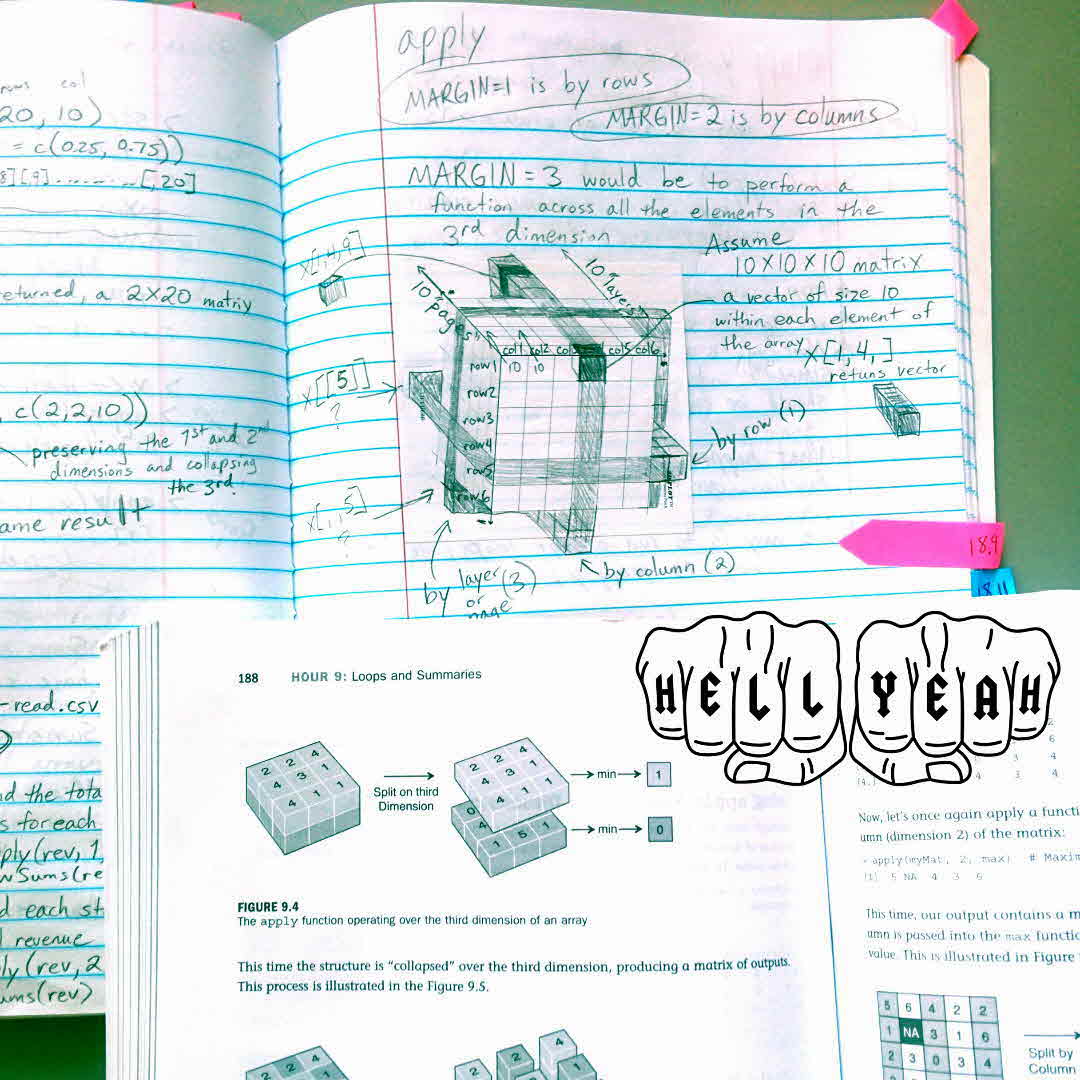 apply
MARGIN=1 is by rows
MARGIN=2 is by columns
MARGIN=3 would be to perform a
function across all the elements in the
3rd dimension
Assume
10X10X10 matrix
a vector of size 10
within each element of
the array X[1,4,]
retuns vector
X[1,4,9]
10 pages
10 layers
col1 col2 col5 col6
row1 10 10
row2
row3
row4
row5
row6
X[[5]]
?
X[,,5]
?
by row (1)
by column (2)
by layer (3)
or
page
18.9
18.11
rows col
20, 10)
= c(0.25, 0.75))
8][,9]........[,20]
returned, a 2X20 matrix
, c(2,2,10))
preserving the 1st and 2nd
dimensions and collapsing
the 3rd.
ame result
read.csv
d the tota
s for each
ply(rev, 1,
wSums(re
d each st
revenue
ly(rev, 2
ums(rev)
HELL YEAH
188 HOUR 9: Loops and Summaries
2 2 4
4 3 1
4 1 1
Split on third
Dimension
2 2 4
4 3 1
4 1 1
min
1
0
4
1 5 1
min
0
FIGURE 9.4
The apply function operating over the third dimension of an array
This time the structure is “collapsed” over the third dimension, producing a matrix of outputs.
This process is illustrated in the Figure 9.5.
2 2 4
1
2 2 4
1 1
2
6
3 4
4 3 4
Now, let's once again apply a functi
umn (dimension 2) of the matrix:
> apply(myMat, 2, max) # Maxim
[1] 5 NA 4 3 6
This time, our output contains a m
umn is passed into the max functio
value. This is illustrated in Figure
5 6 4 2 2
1 NA 3 1 6
2 3 0 3 4
Split by
Column